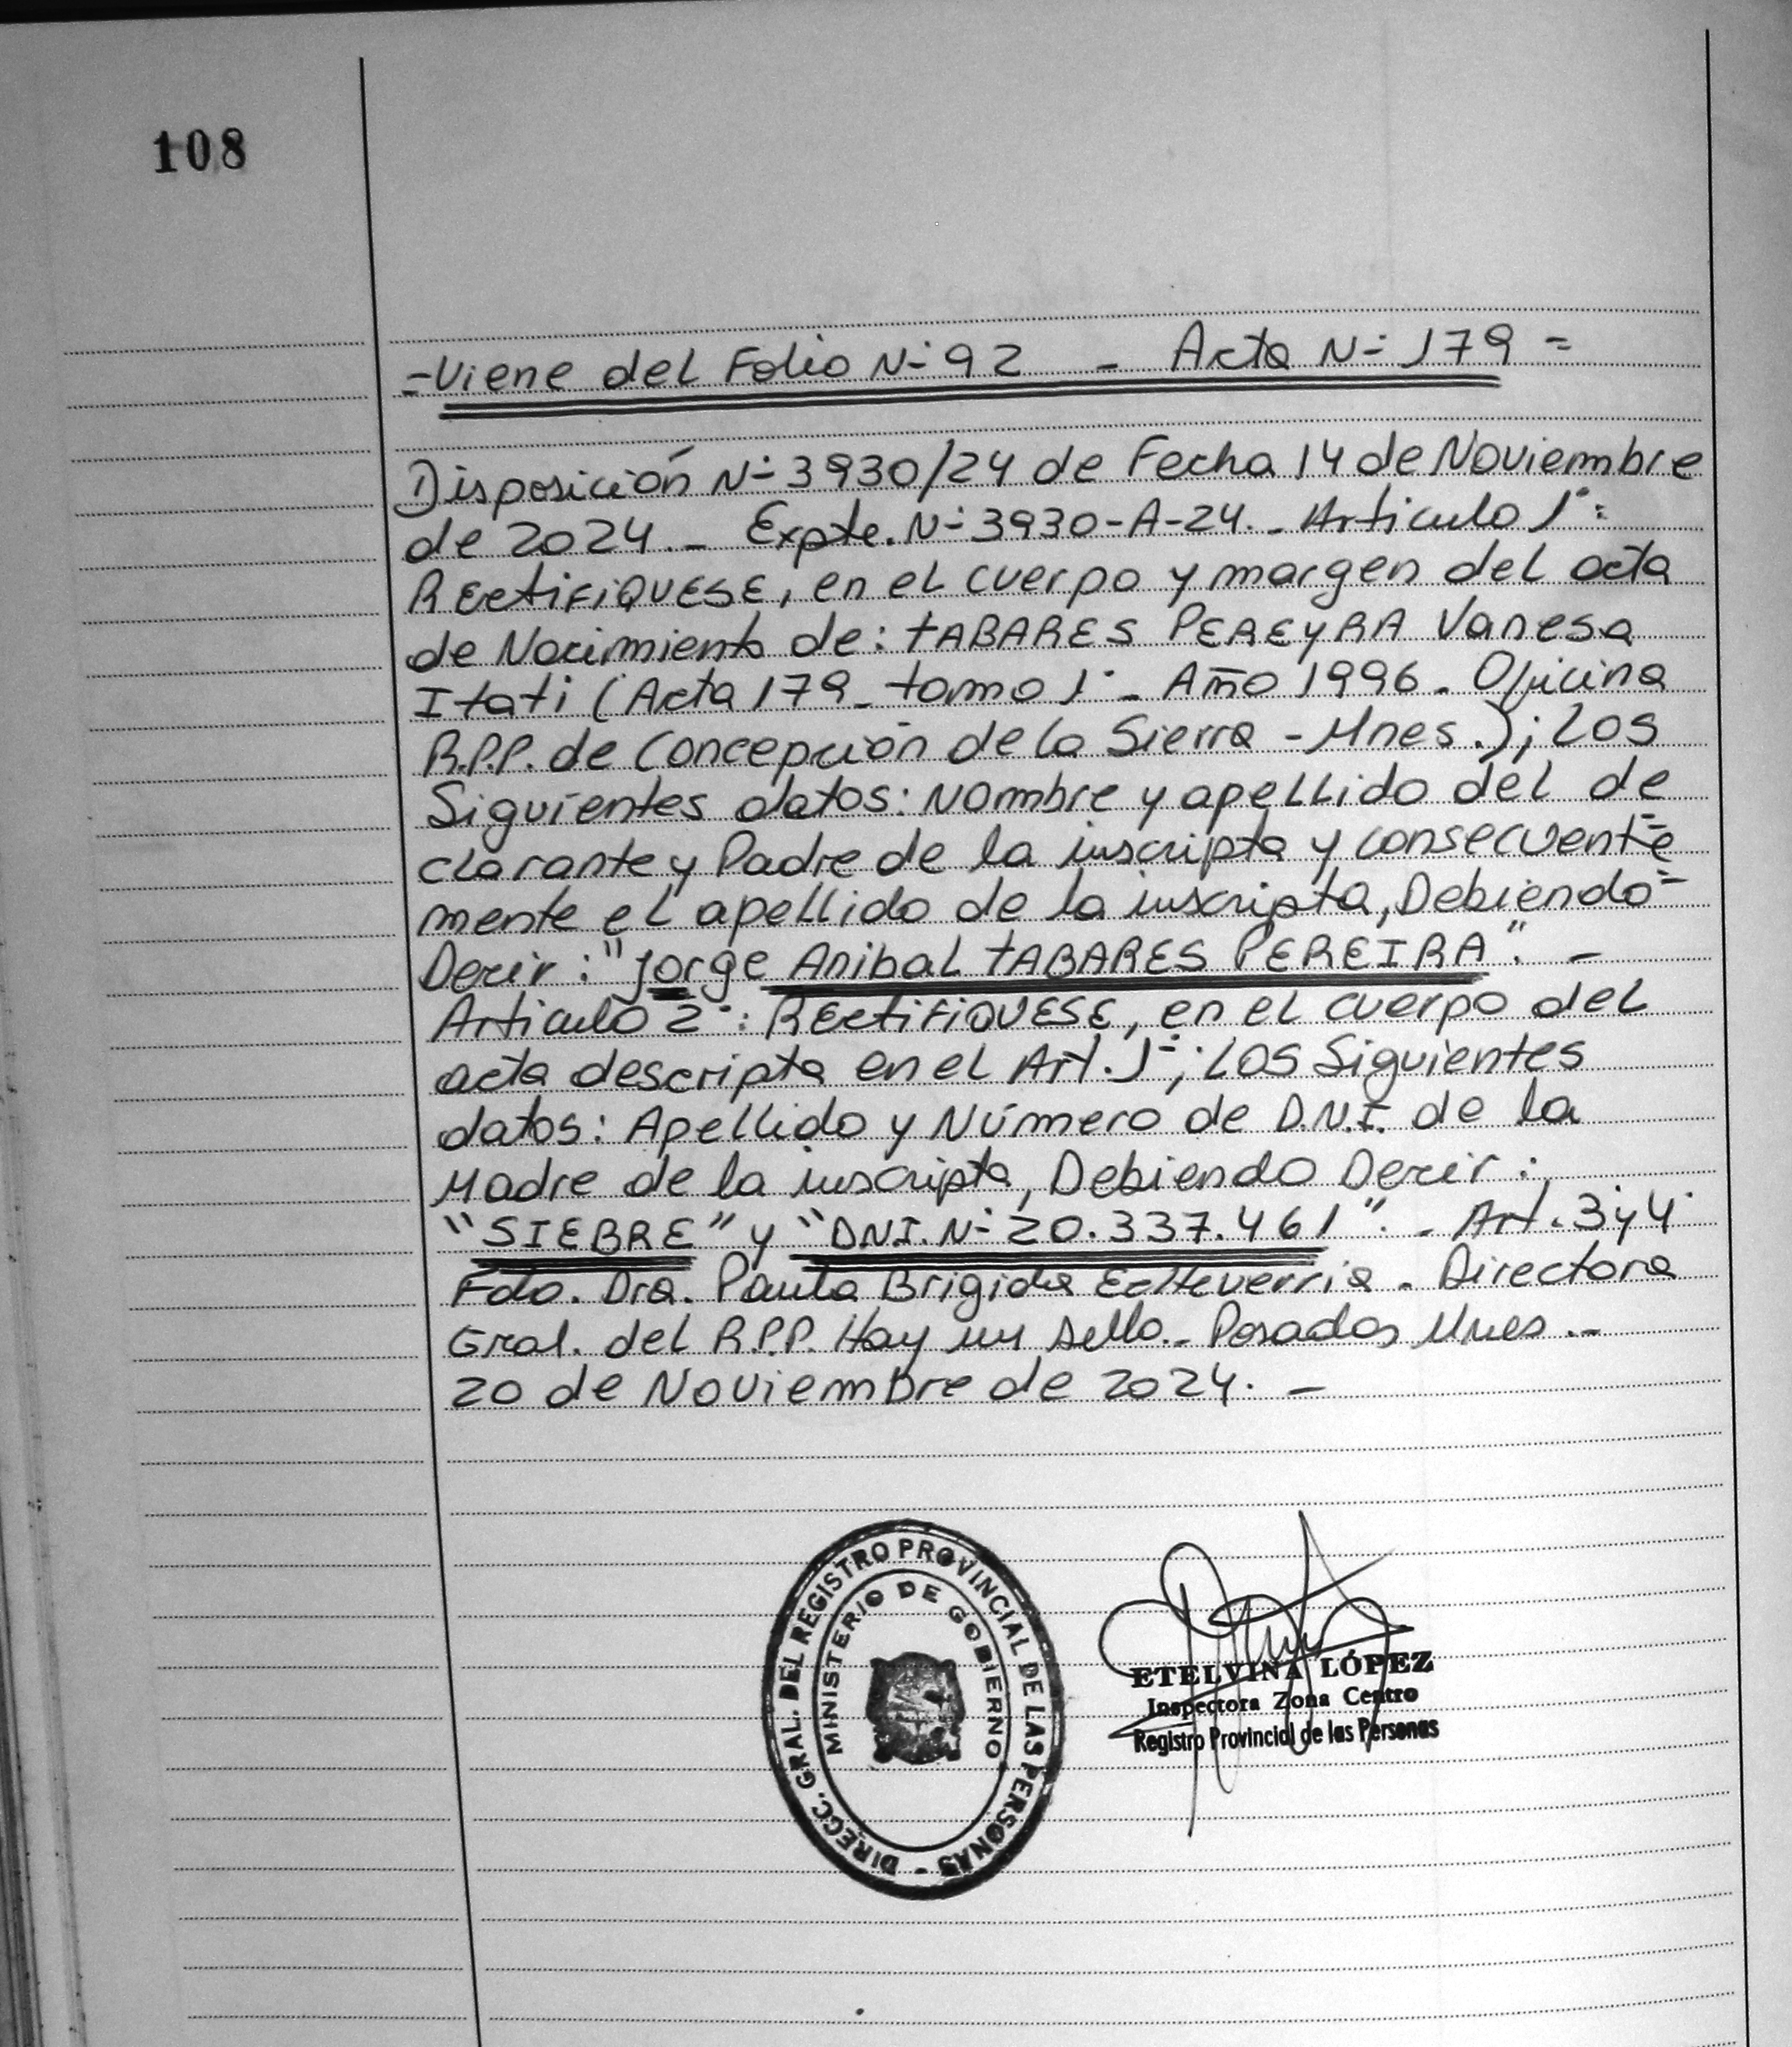 108
=Viene del Folio N° 92 - Acta N° 179 =
Disposición N° 3930/24 de Fecha 14 de Noviembre
de 2024.- Expte. N° 3930-A-24.- Articulo 1°:
RECTIFIQUESE, en el cuerpo y margen del acta
de Nacimiento de: TABARES PEREYRA Vanesa
Itati (Acta 179 - tomo 1° - Año 1996 - Oficina
R.P.P. de Concepción de la Sierra - Mnes.); Los
Siguientes datos: Nombre y apellido del de
clarante y Padre de la inscripta y consecuente=
mente el apellido de la inscripta, Debiendo=
Decir: "Jorge Anibal TABARES PEREIRA". -
Articulo 2°: RECTIFIQUESE, en el cuerpo del
acta descripta en el Art. 1°; Los Siguientes
datos: Apellido y Número de D.N.I. de la
Madre de la inscripta, Debiendo Decir:
"SIEBRE" y "D.N.I. N° 20.337.461". - Art. 3 y 4°
Fdo. Dra. Paula Brigida Echeverria - Directora
Gral. del R.P.P. Hay un sello.- Posadas Mnes.-
20 de Noviembre de 2024. -
DIRECC. GRAL. DEL REGISTRO PROVINCIAL DE LAS PERSONAS -
MINISTERIO DE GOBIERNO
ETELVINA LÓPEZ
Inspectora Zona Centro
Registro Provincial de las Personas